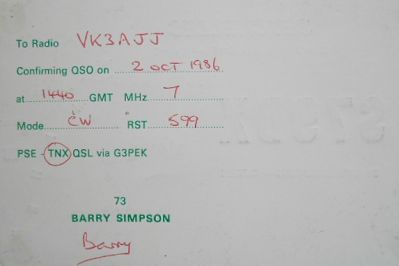 To Radio VK3AJJ
Confirming QSO on 2 OCT 1986
at 1440 GMT MHz 7
Mode CW RST 599
PSE - TNX QSL via G3PEK
73
BARRY SIMPSON
Barry